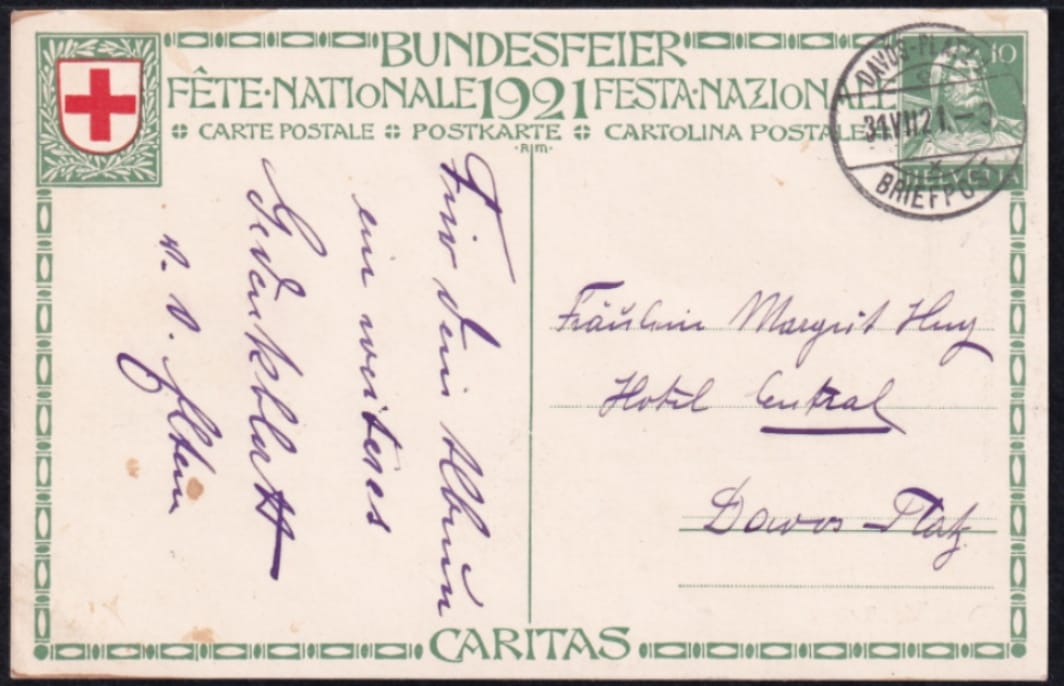 BUNDESFEIER
FÊTE·NATIONALE 1921 FESTA·NAZIONALE
CARTE POSTALE POSTKARTE CARTOLINA POSTALE
·R|M·
10
HELVETIA
DAVOS-PLATZ
31.VII.21.-
BRIEFPOST
Für dein Album
ein weiteres
Gedenkblatt
v. d.
Fräulein Margrit Hug
Hotel Central
Davos-Platz
CARITAS